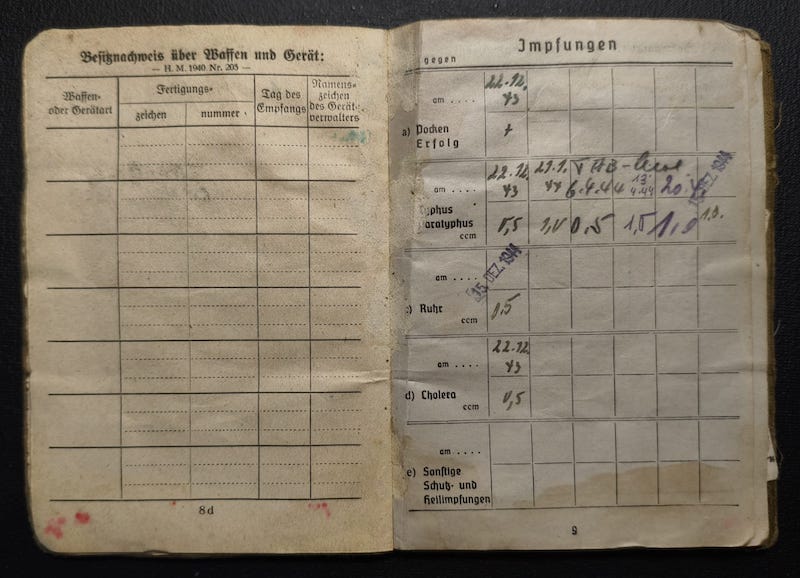 Besitznachweis über Waffen und Gerät:
— H. M. 1940. Nr. 205 —
Waffen-
oder Gerätart
Fertigungs-
zeichen
nummer
Tag des
Empfangs
Namens-
zeichen
des Gerät-
verwalters
8d
Impfungen
gegen
am . . . .
22.12.
43
a) Pocken
Erfolg
+
am . . . .
22.12.
43
21.1.
44
6.4.44
13.
4.44
20.4.
15. DEZ. 1944
typhus
Paratyphus
ccm
0,5
1,0
0.5
1,0
1,0
1,0.
am . . . .
15. DEZ. 1944
c) Ruhr
ccm
0.5
am . . . .
22.12.
43
d) Cholera
ccm
0,5
am . . . .
e) Sonstige
Schutz- und
Heilimpfungen
9